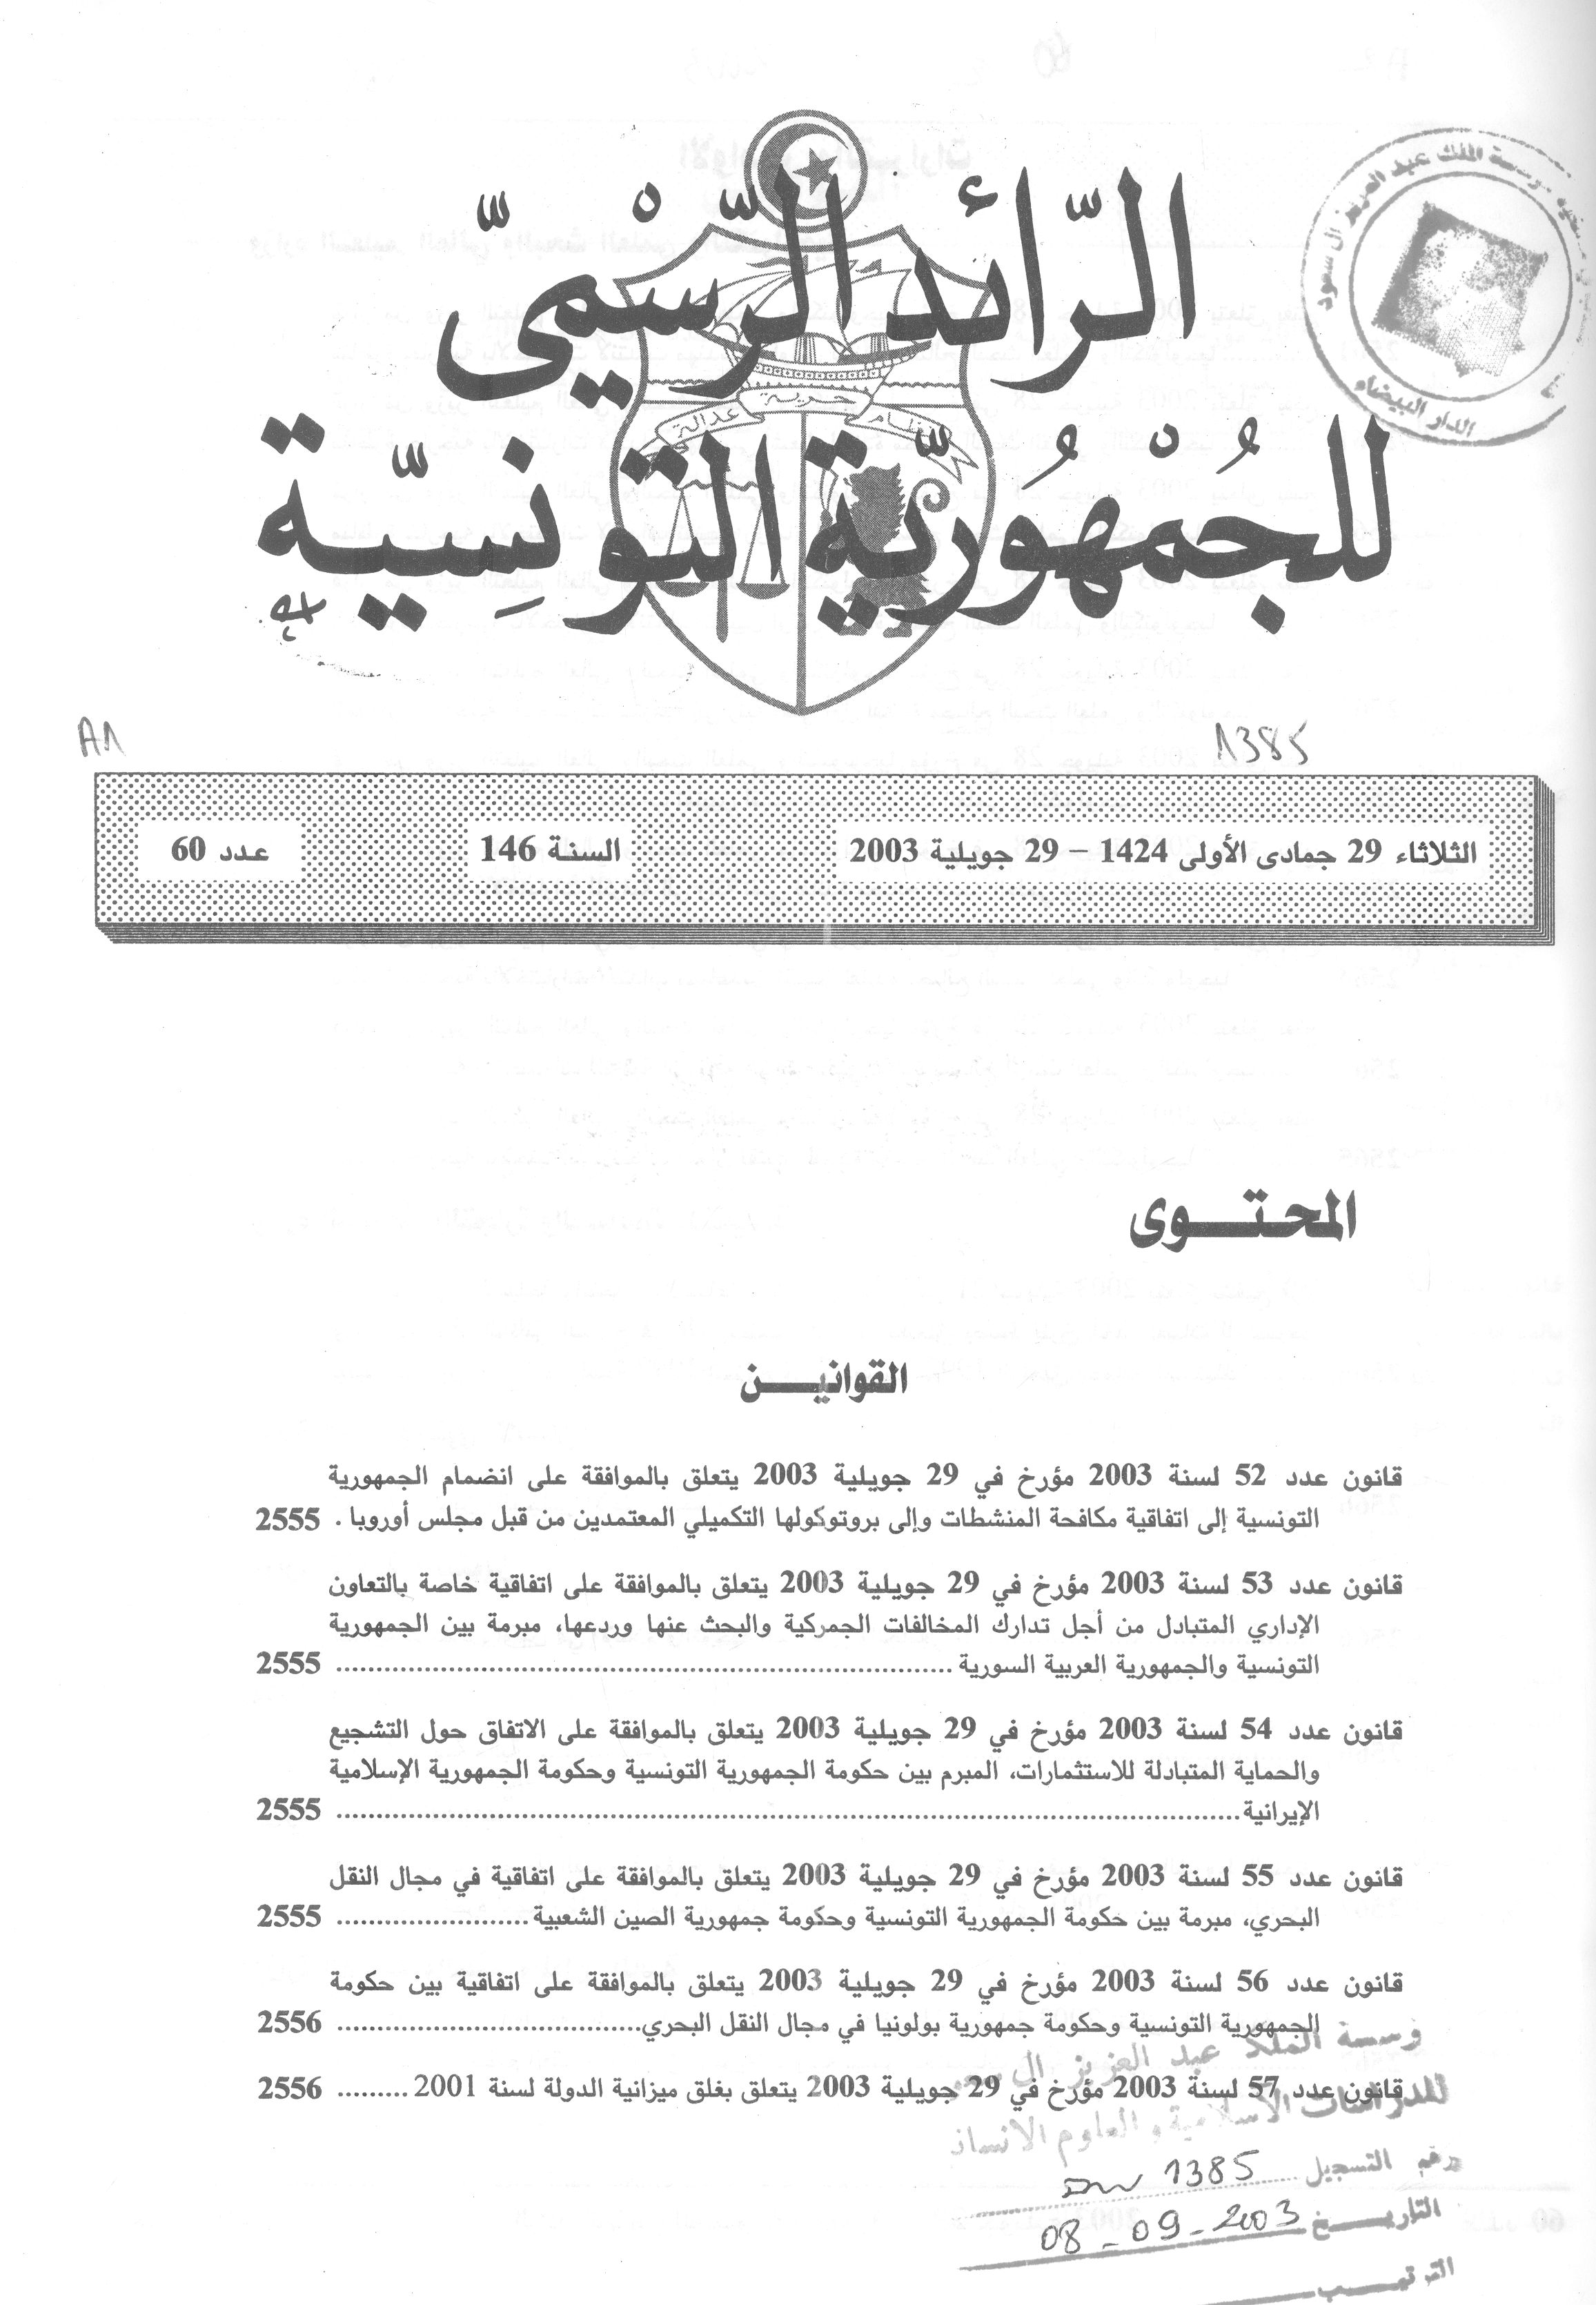 الرّائد الرّسْميّ
للجُمْهُوريّة التونِسيّة
نظام حرية عدالة
الملك عبد العزيز آل سعود
الدار البيضاء
A1
1385
الثلاثاء 29 جمادى الأولى 1424 – 29 جويلية 2003
السنة 146
عدد 60
المحتوى
القوانين
قانون عدد 52 لسنة 2003 مؤرخ في 29 جويلية 2003 يتعلق بالموافقة على انضمام الجمهورية
التونسية إلى اتفاقية مكافحة المنشطات وإلى بروتوكولها التكميلي المعتمدين من قبل مجلس أوروبا . 2555
قانون عدد 53 لسنة 2003 مؤرخ في 29 جويلية 2003 يتعلق بالموافقة على اتفاقية خاصة بالتعاون
الإداري المتبادل من أجل تدارك المخالفات الجمركية والبحث عنها وردعها، مبرمة بين الجمهورية
التونسية والجمهورية العربية السورية ........ 2555
قانون عدد 54 لسنة 2003 مؤرخ في 29 جويلية 2003 يتعلق بالموافقة على الاتفاق حول التشجيع
والحماية المتبادلة للاستثمارات، المبرم بين حكومة الجمهورية التونسية وحكومة الجمهورية الإسلامية
الإيرانية ........ 2555
قانون عدد 55 لسنة 2003 مؤرخ في 29 جويلية 2003 يتعلق بالموافقة على اتفاقية في مجال النقل
البحري، مبرمة بين حكومة الجمهورية التونسية وحكومة جمهورية الصين الشعبية ........ 2555
قانون عدد 56 لسنة 2003 مؤرخ في 29 جويلية 2003 يتعلق بالموافقة على اتفاقية بين حكومة
الجمهورية التونسية وحكومة جمهورية بولونيا في مجال النقل البحري ........ 2556
قانون عدد 57 لسنة 2003 مؤرخ في 29 جويلية 2003 يتعلق بغلق ميزانية الدولة لسنة 2001 ......... 2556
الملك عبد العزيز آل
للدراسات الاسلامية و العلوم
رقم التسجيل 1385
التاريخ 08 - 09 - 2003
الترتيب